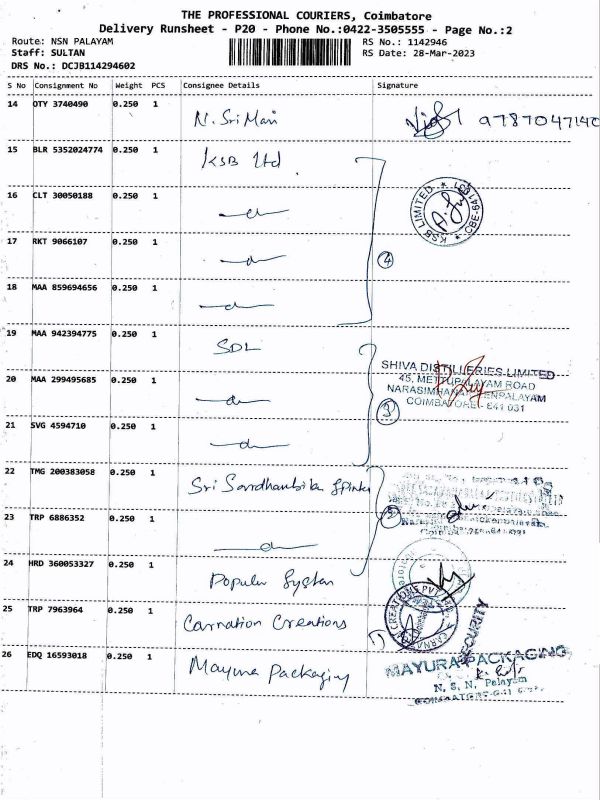 THE PROFESSIONAL COURIERS, Coimbatore
Delivery Runsheet - P20 - Phone No.:0422-3505555 - Page No.:2
Route: NSN PALAYAM RS No.: 1142946
Staff: SULTAN RS Date: 28-Mar-2023
DRS No.: DCJB114294602
S No Consignment No Weight PCS Consignee Details Signature
14 OTY 3740490 0.250 1 N. Sri Mari 9787047140
15 BLR 5352024774 0.250 1 KSB Ltd
16 CLT 30050188 0.250 1 KSB LIMITED
17 RKT 9066107 0.250 1 4
18 MAA 859694656 0.250 1
19 MAA 942394775 0.250 1 SDL
SHIVA DISTILLERIES LIMITED
20 MAA 299495685 0.250 1 45, METTUPALAYAM ROAD
COIMBATORE - 641 031
21 SVG 4594710 0.250 1 3
22 TMG 200383058 0.250 1 Sri
23 TRP 6886352 0.250 1 2
24 HRD 360053327 0.250 1 Popular System
25 TRP 7963964 0.250 1 Carnation Creations 1)
SECURITY
26 EDQ 16593018 0.250 1 Mayura Packaging MAYURA PACKAGING
N. S. N. Palayam